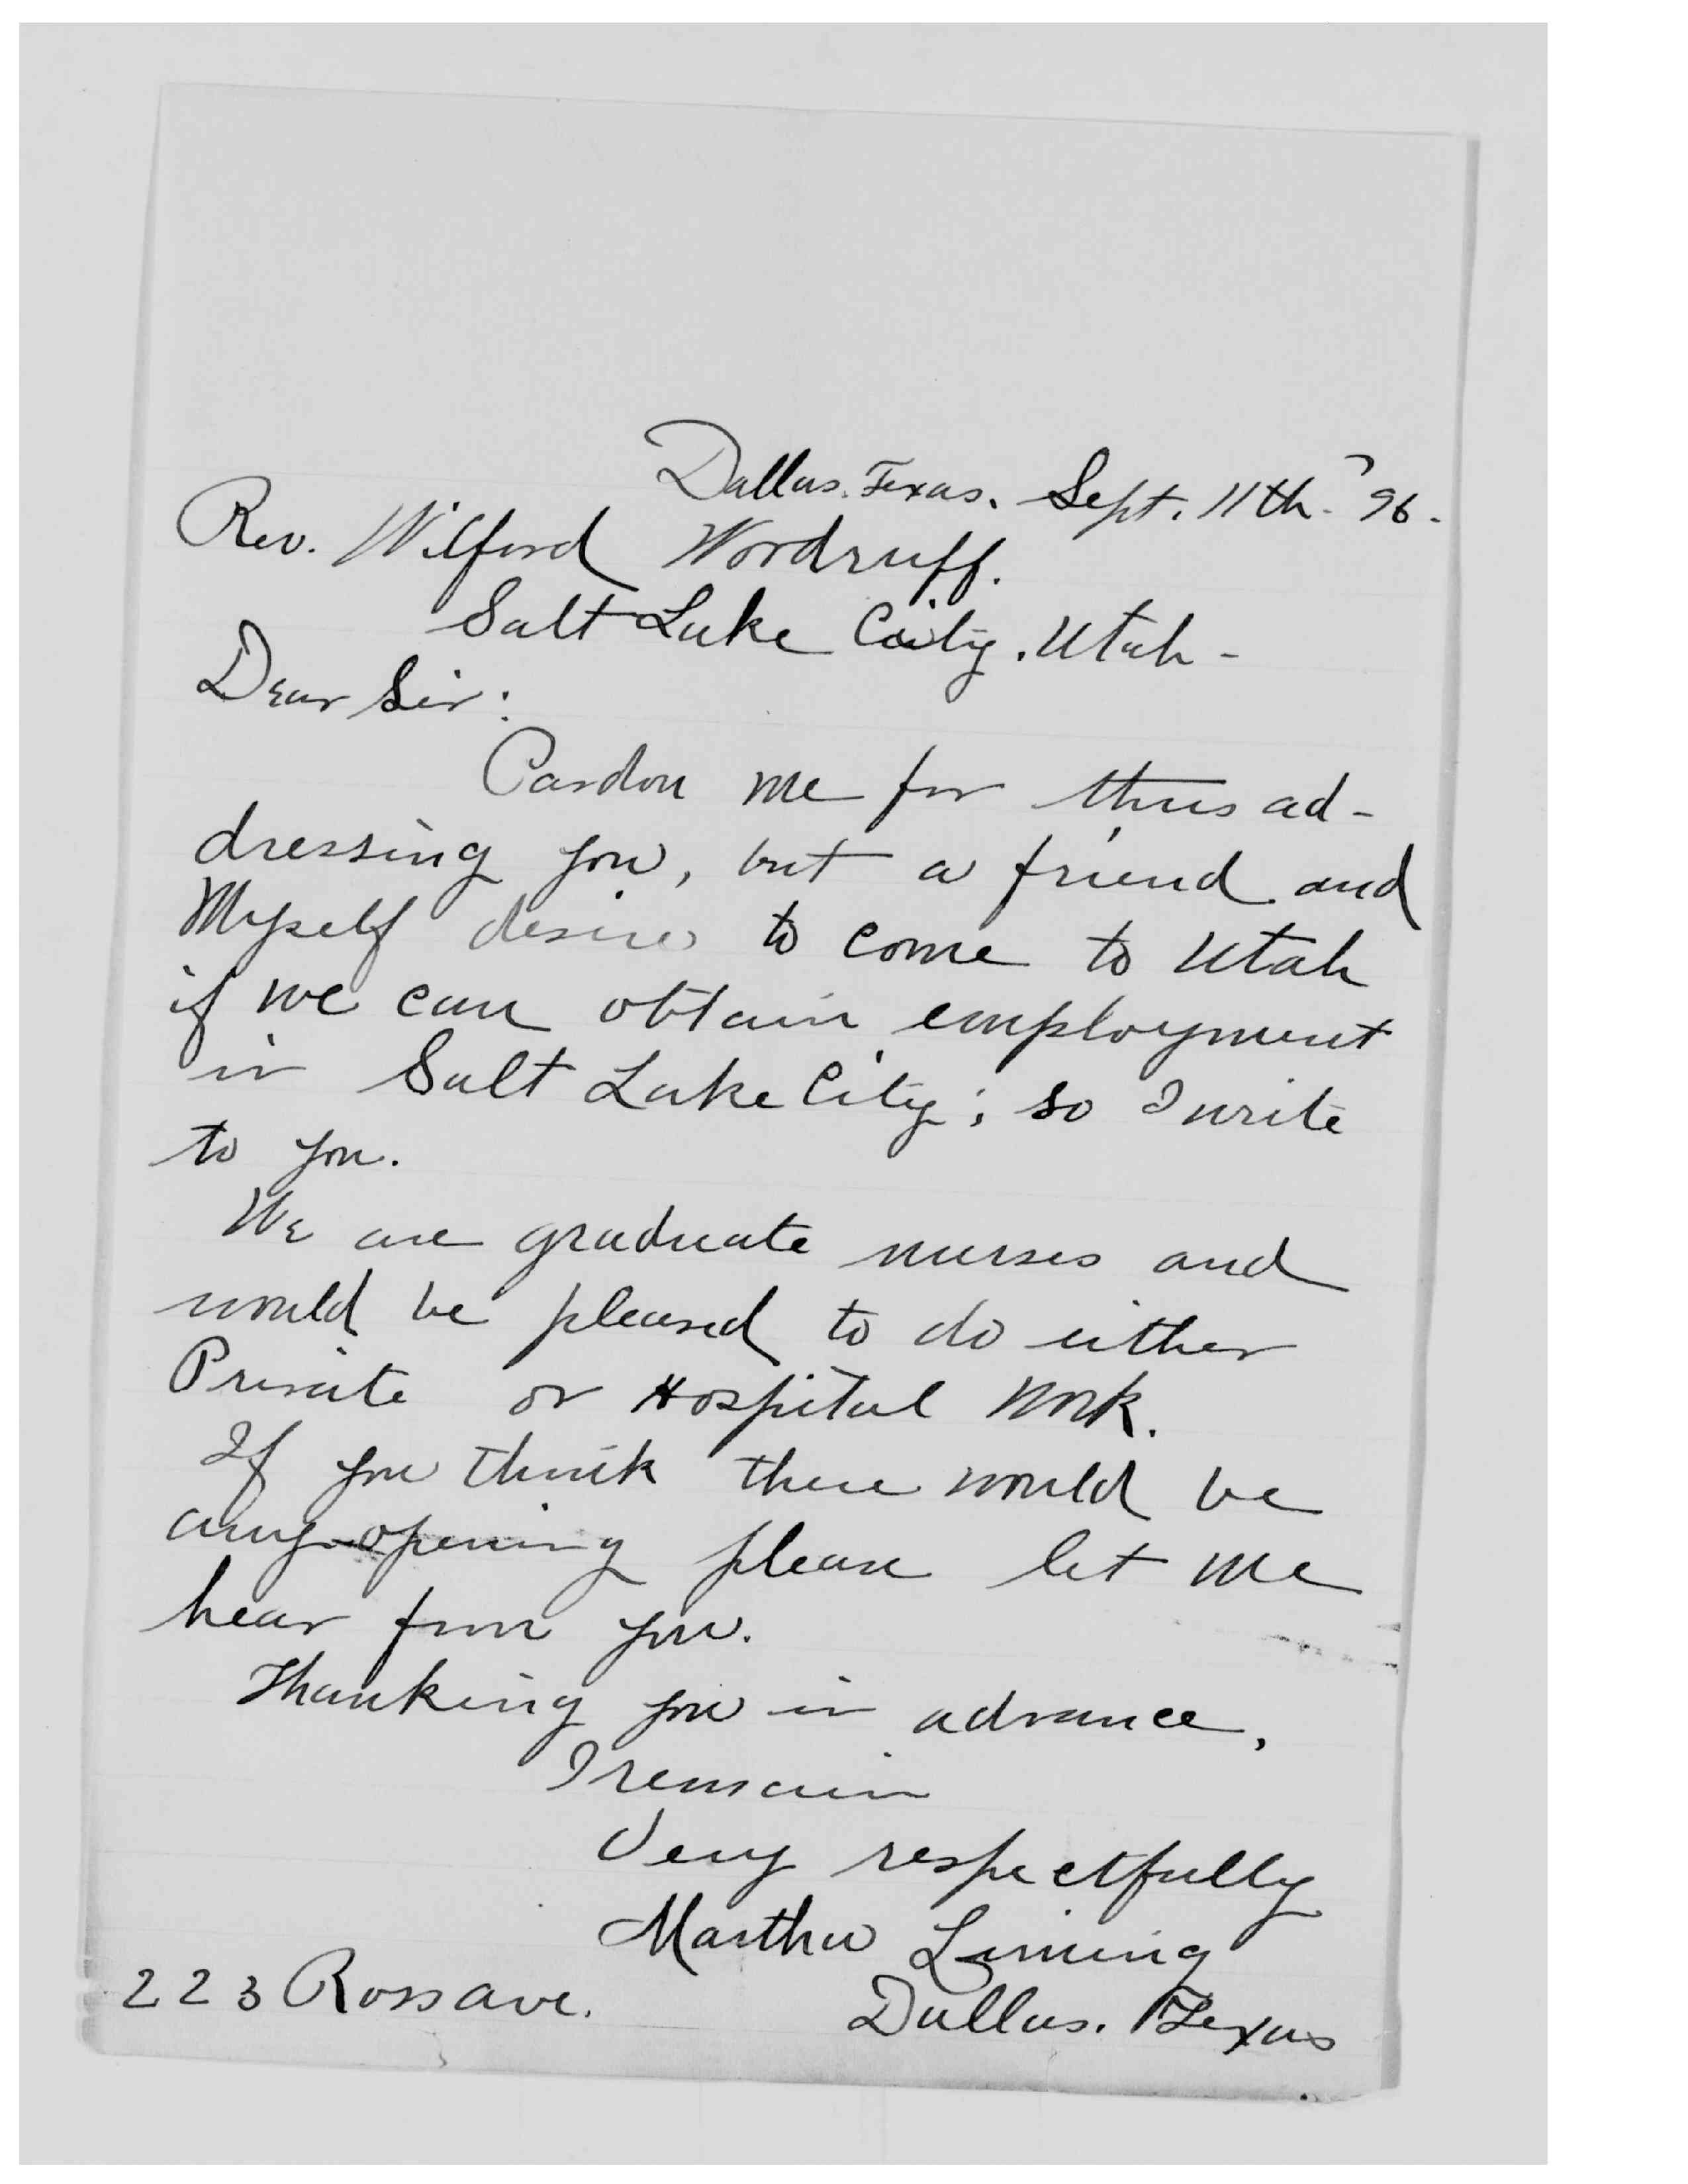 Dallas. Texas. Sept. 11th. '96.
Rev. Wilford Woodruff.
Salt Lake City. Utah-
Dear Sir:
Pardon me for thus ad-
dressing you, but a friend and
Myself desire to come to Utah
if we can obtain employment
in Salt Lake City; so I write
to you.
We are graduate nurses and
would be pleased to do either
Private or Hospital Work.
If you think there would be
any opening please let me
hear from you.
Thanking you in advance,
I remain
Very respectfully
Martha Liming
223 Ross ave. Dallas. Texas